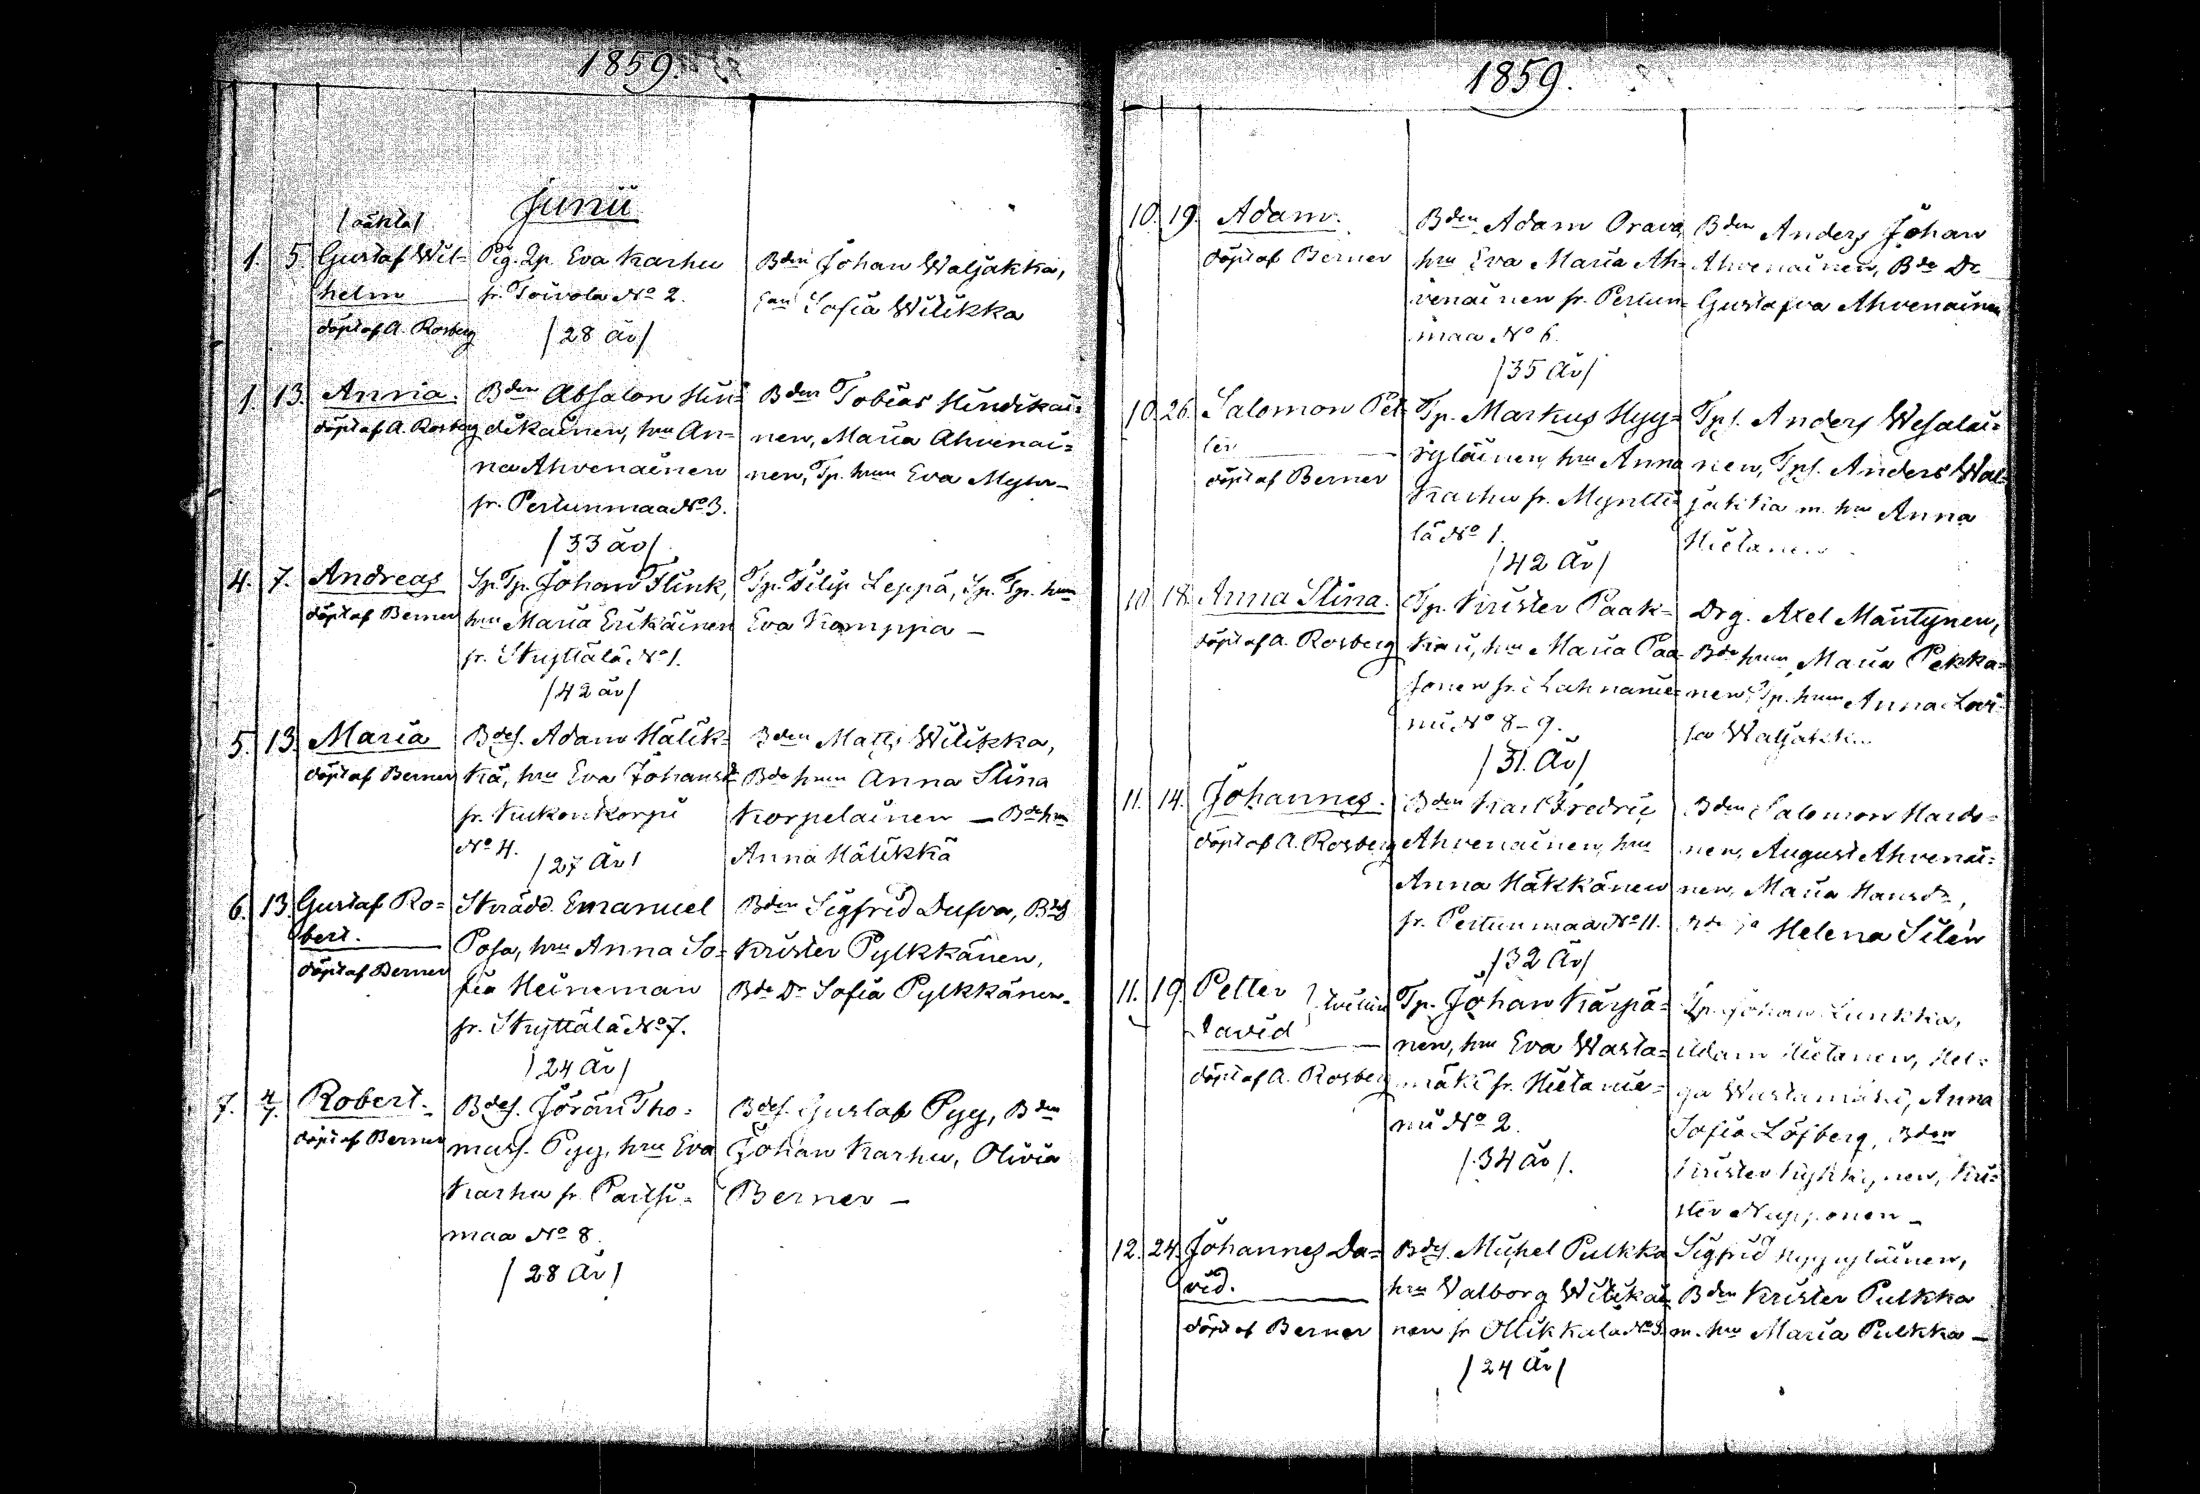 1859.
Junii
/oäkta/
1. 5. Gustaf Wil-
helm
döpt af A. Rosberg
Pig. Eva Karhu
fr. Toivola No 2.
/28 år/
Bden Johan Waljakka,
Sofia Wilikka
1. 13. Anna.
döpt af A. Rosberg
Bden Absalon Hin-
dikainen, hru An-
na Ahvenainen
fr. Pertunmaa No 3.
/33 år/
Bden Tobias Hindikai-
nen, Maria Ahvenai-
nen, Tp. hrun Eva
4. 7. Andreas
döpt af Berner
Sp. Tp. Johan Flink,
hru Maria Erikäinen
fr. Nuyttälä No 1.
/42 år/
Tp. Filip Leppä, Sp. Tp. hrun
Eva Kamppa —
5. 13. Maria
döpt af Berner
Bdes. Adam Hälik-
kä, hru Eva Johansd
fr. Kuckonkorpi
No 4.
/27 År/
Bden Matts Wilikka,
Bde hrun Anna Stina
Korpelainen — Bde hru
Anna Hälikkä
6. 13. Gustaf Ro-
bert.
döpt af Berner
Skrädd. Emanuel
Posa, hru Anna So-
fia Heineman
fr. Nuyttälä No 7.
/24 År/
Bden Sigfrid Dufva, Bdes
Krister Pylkkänen,
Bde Dr Sofia Pylkkänen.
7. 4/7. Robert.
döpt af Berner
Bdes. Jöran Tho-
mass. Pyy, hru Eva
Karhu fr. Paitsi-
maa No 8.
/28 År/
Bdes. Gustaf Pyy, Bden
Johan Karhu, Olivia
Berner —
1859.
10. 19. Adam.
döpt af Berner
Bden Adam Orava
hru Eva Maria Ah-
venainen fr. Pertun-
maa No 6.
/35 År/
Bden Anders Johan
Ahvenainen, Bde Dr
Gustafva Ahvenainen
10. 26. Salomon Pet-
ter
döpt af Berner
Tp. Markus Hyy-
ryläinen, hru Anna
Karhu fr. Myntti-
lä No 1.
/42 År/
Tps. Anders Wesalai-
nen, Tps. Anders Wal-
jakka m. hru Anna
Hietanen
10. 18. Anna Stina.
döpt af A. Rosberg
Tp. Krister Paak-
ki, hru Maria Paa-
sonen fr. Lahnanie-
mi No 8-9.
/31. År/
Drg. Axel Mäntynen,
Bde hrun Maria Pekka-
nen, Tp. hrun Anna Lovi-
sa
11. 14. Johannes.
döpt af A. Rosberg
Bden Karl Fredric
Ahvenainen, hru
Anna Häkkänen
fr. Pertunmaa No 11.
/32 År/
Bden Salomon Hardo-
nen, August Ahvenai-
nen, Maria Hansdr,
Helena Silén
11. 19. Petter
David
döpt af A. Rosberg
Tp. Johan Kärpä-
nen, hru Eva Wasta-
mäki fr. Hietanie-
mi No 2.
/34 år/.
Johan Lunkka,
Adam Hietanen, Hel-
ga Wastamäki, Anna
Sofia Löfberg, Bden
Krister nen, Kri-
ster Nupponen —
12. 24. Johannes Da-
vid.
döpt af Berner
Bdes. Michel Pulkka
hru Valborg Wilikai-
nen fr. Ollikkala No 3.
/24 År/
Sigfrid Hyyryläinen,
Bden Krister Pulkka
m. hru Maria Pulkka —